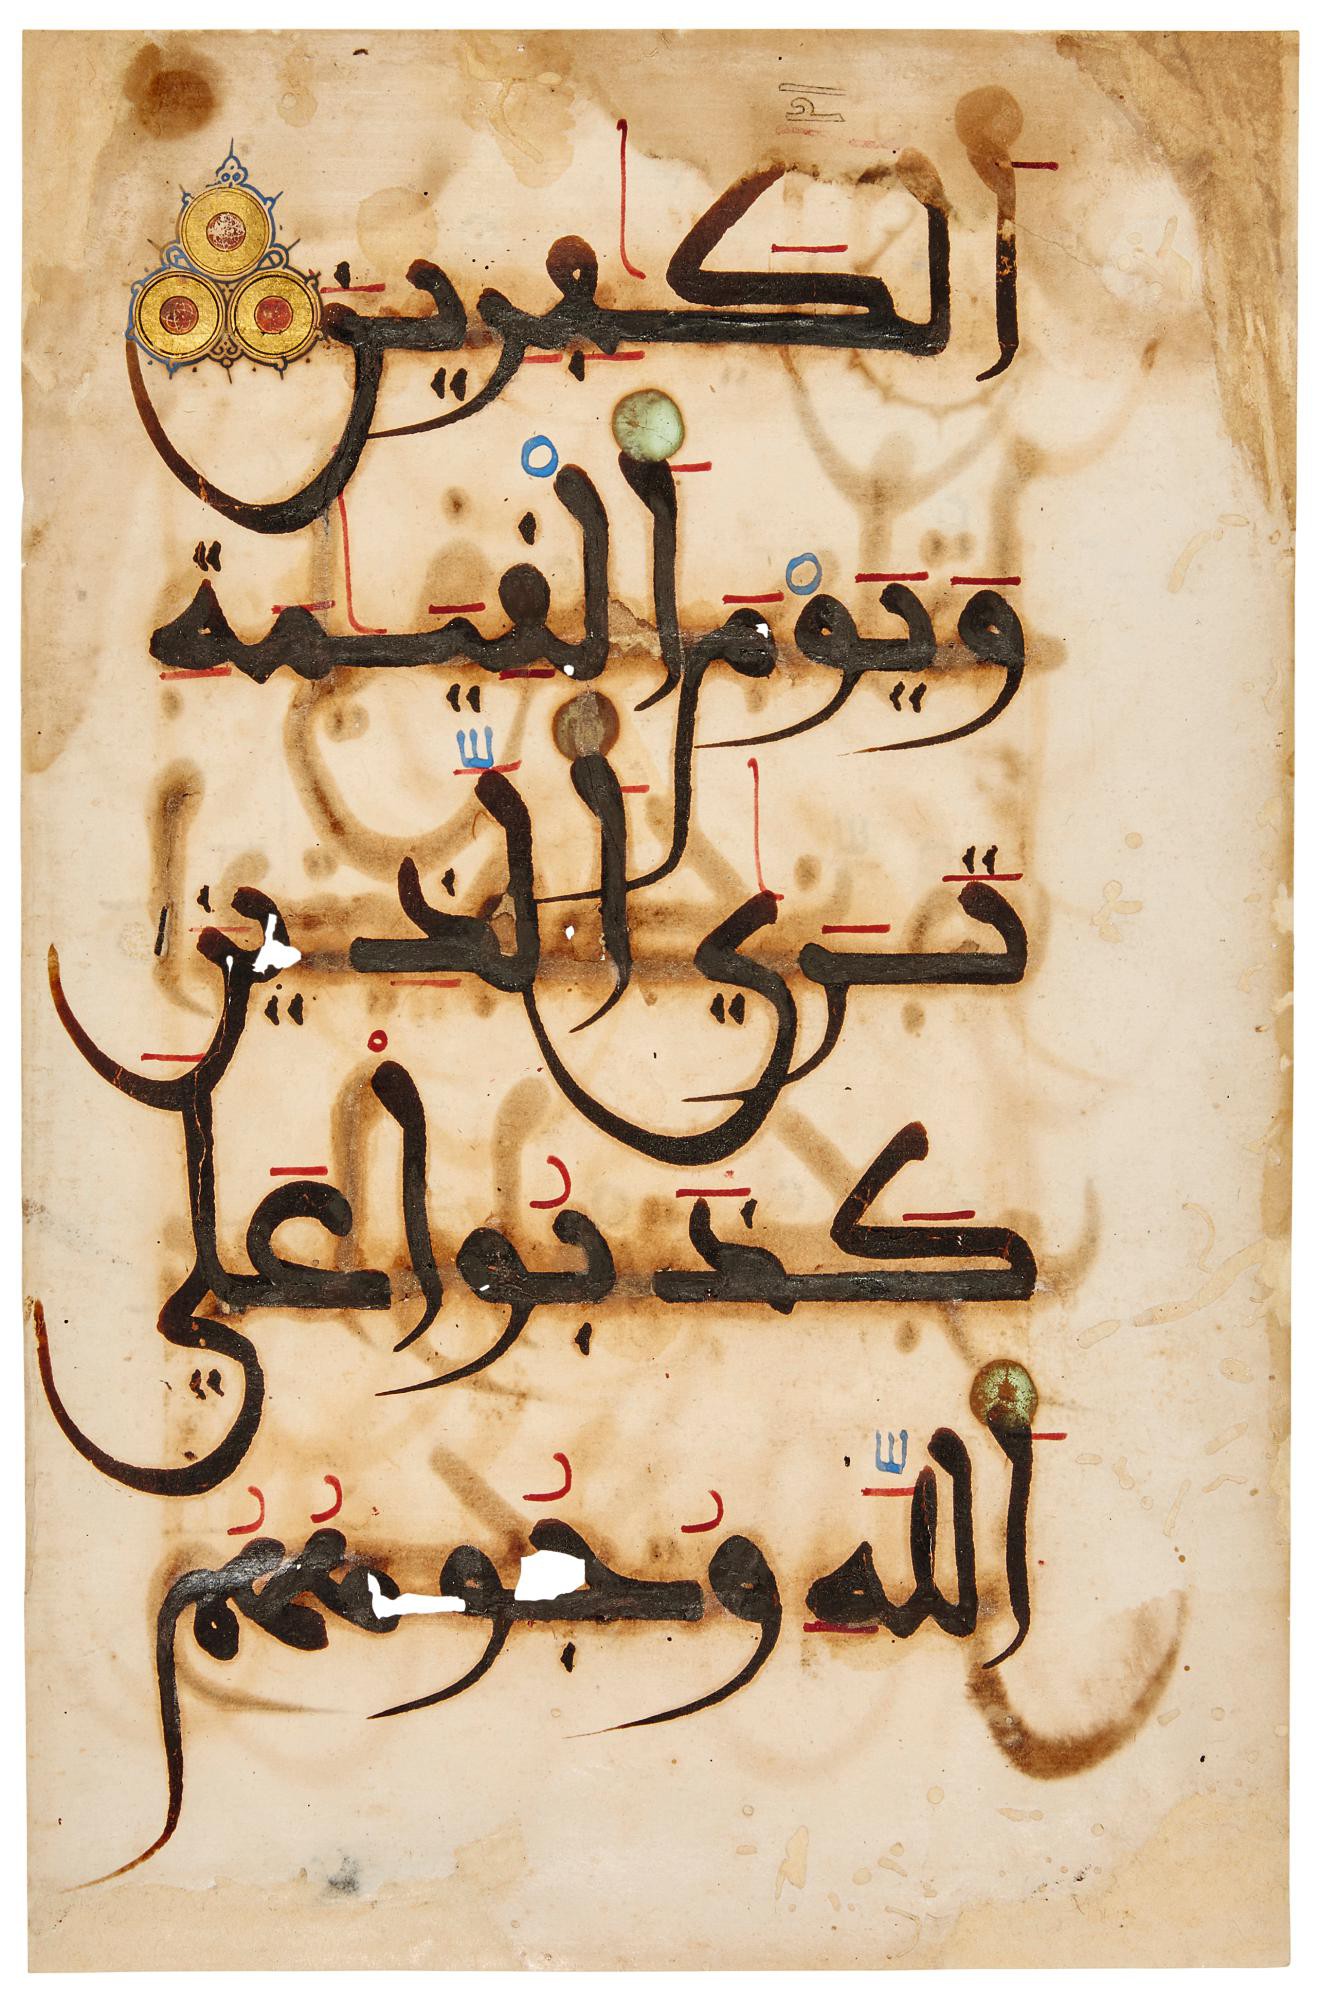 ٱلْكَٰفِرِينَ
وَيَوْمَ ٱلْقِيَٰمَةِ
تَرَى ٱلَّذِينَ
كَذَبُوا۟ عَلَى
ٱللَّهِ وُجُوهُهُم